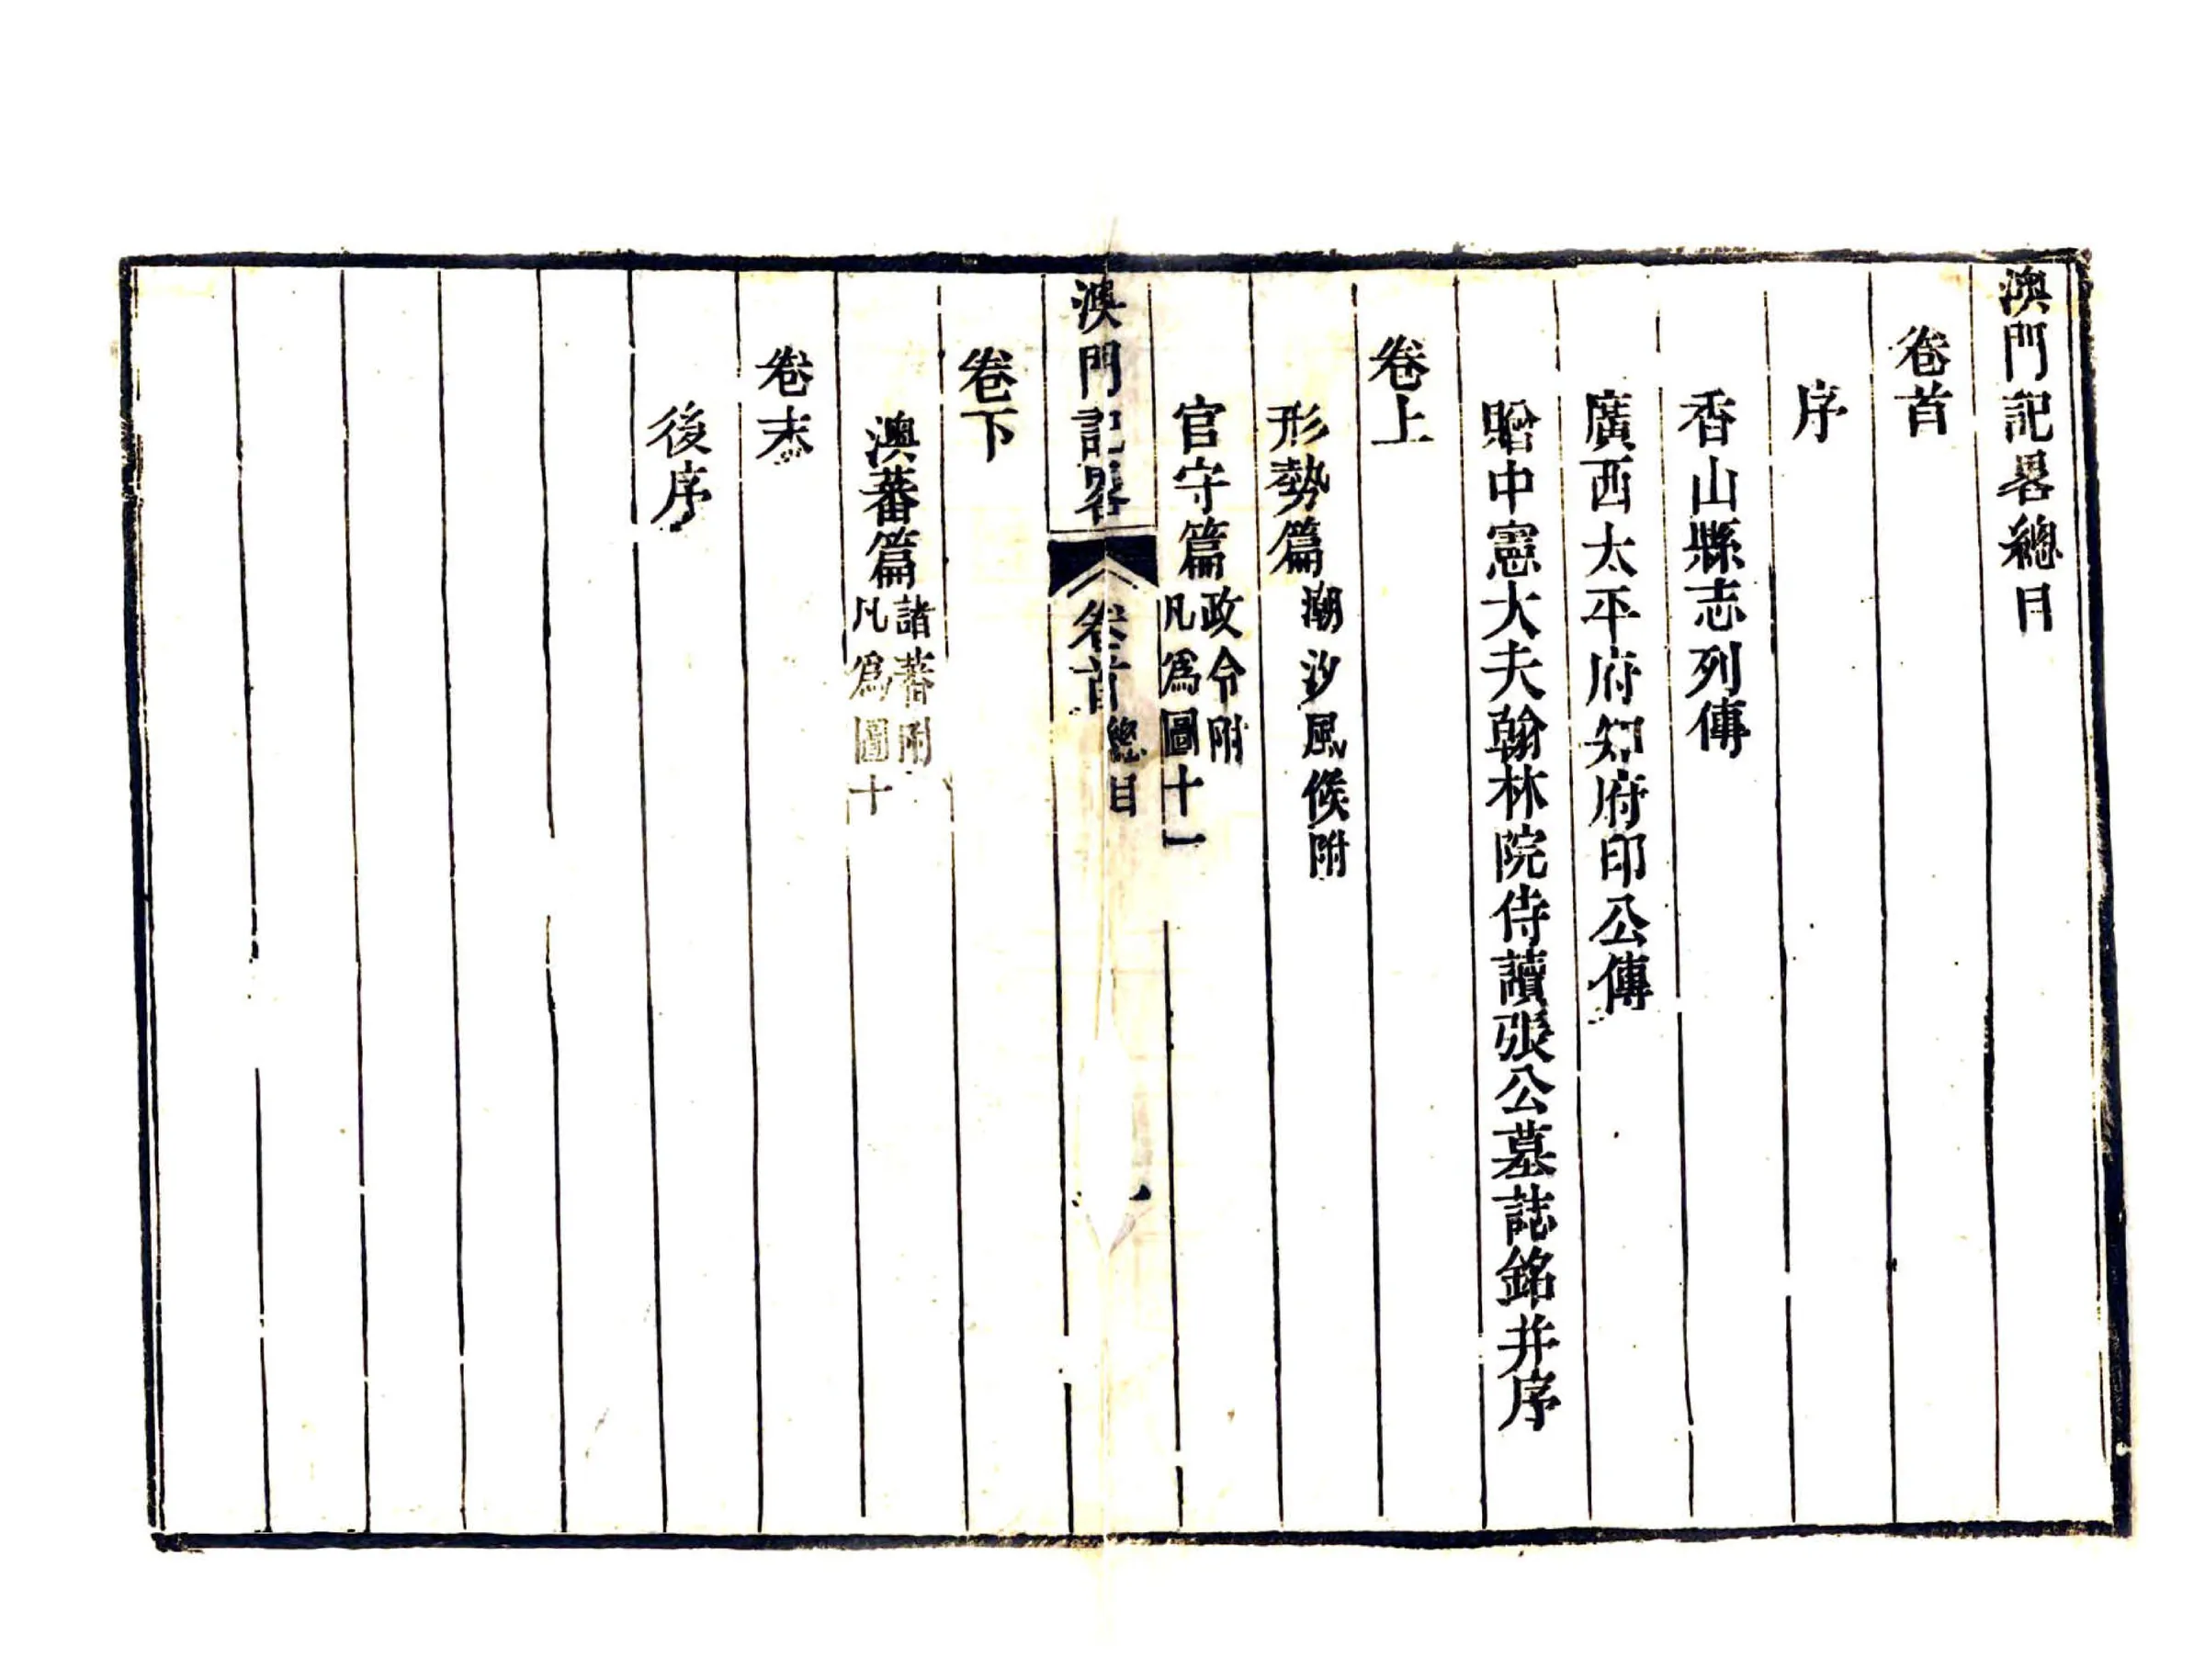 澳門記畧總目
卷首
序
香山縣志列傳
廣西太平府知府印公傳
贈中憲大夫翰林院侍讀張公墓誌銘并序
卷上
形勢篇潮汐風候附
官守篇政令附
凡為圖十一
澳門記畧
卷首總目
一
卷下
澳蕃篇諸蕃附
凡為圖十
卷末
後序